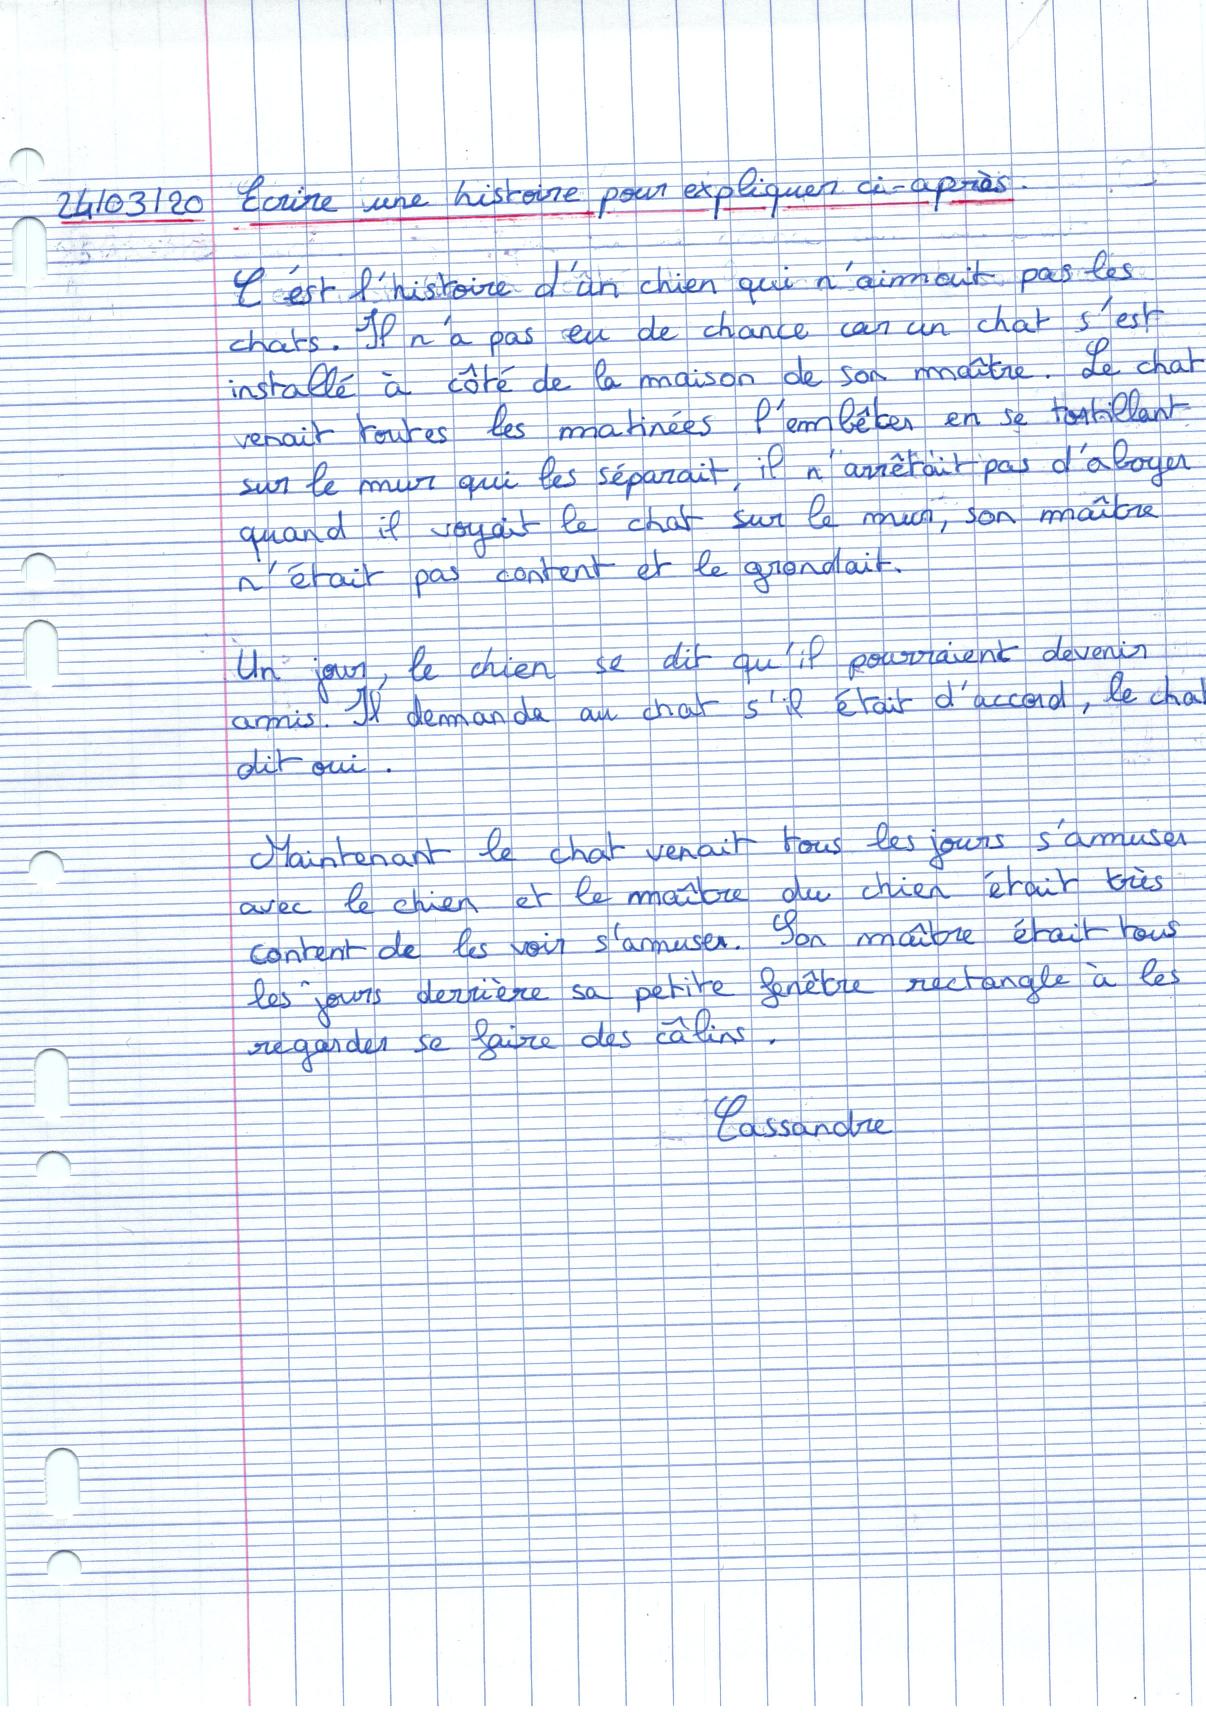 24/03/20 Ecrire une histoire pour expliquer ci-après.
C'est l'histoire d'un chien qui n'aimait pas les
chats. Il n'a pas eu de chance car un chat s'est
installé à côté de la maison de son maître. Le chat
venait toutes les matinées l'embêter en se tortillant
sur le mur qui les séparait, il n'arrêtait pas d'aboyer
quand il voyait le chat sur le mur, son maître
n'était pas content et le grondait.
Un jour, le chien se dit qu'il pourraient devenir
amis. Il demanda au chat s'il était d'accord, le chat
dit oui.
Maintenant le chat venait tous les jours s'amuser
avec le chien et le maître du chien était très
content de les voir s'amuser. Son maître était tous
les jours derrière sa petite fenêtre rectangle à les
regarder se faire des câlins.
Cassandre